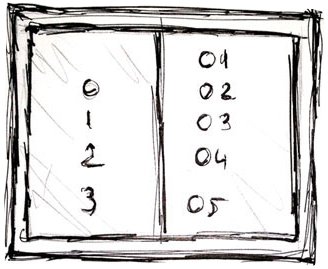 0
1
2
3
01
02
03
04
05